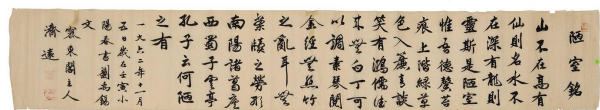 陋室銘
山不在高有
仙則名水不
在深有龍則
靈斯是陋室
惟吾德馨苔
痕上階綠草
色入簾青談
笑有鴻儒往
來無白丁可
以調素琴閱
金經無絲竹
之亂耳無
案牘之勞形
南陽諸葛廬
西蜀子雲亭
孔子云何陋
之有
一九六二年十一月
五日歲在壬寅小
陽春書劉禹錫
文
東閣主人
濟遠